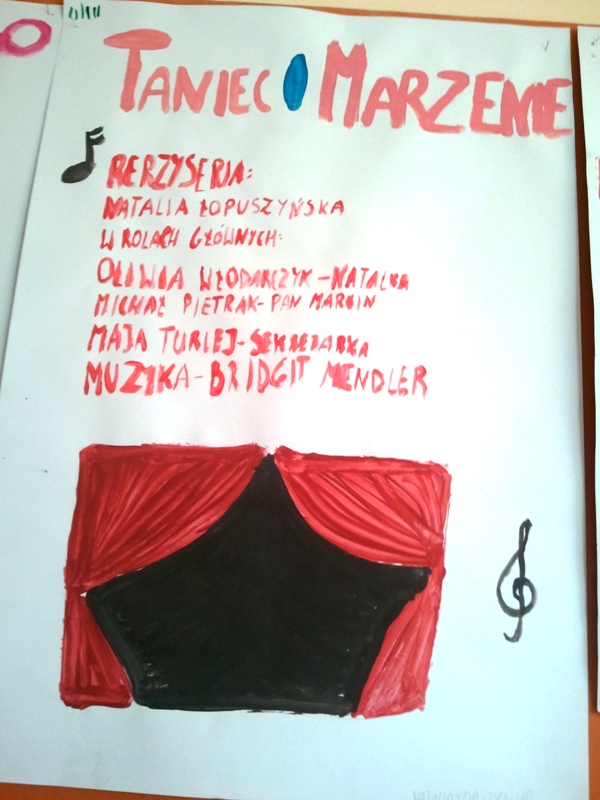 TANIEC O MARZENIE
RERZYSERIA:
NATALIA ŁOPUSZYŃSKA
W ROLACH GŁÓWNYCH:
OLIWIA WŁODARCZYK-NATALKA
MICHAŁ PIETRAK-PAN MARCIN
MAJA TURLEJ-SEKRETARKA
MUZYKA-BRIDGIT MENDLER